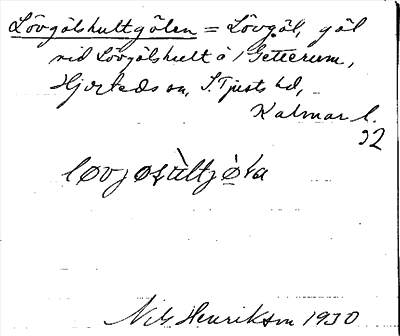 Lövgölshultgölen = Lövgöl, göl
vid Lövgölshult å 1 Getterum,
Hjorteds sn, S. Tjusts hd,
Kalmar l.
92
Nils Henrikson 1930